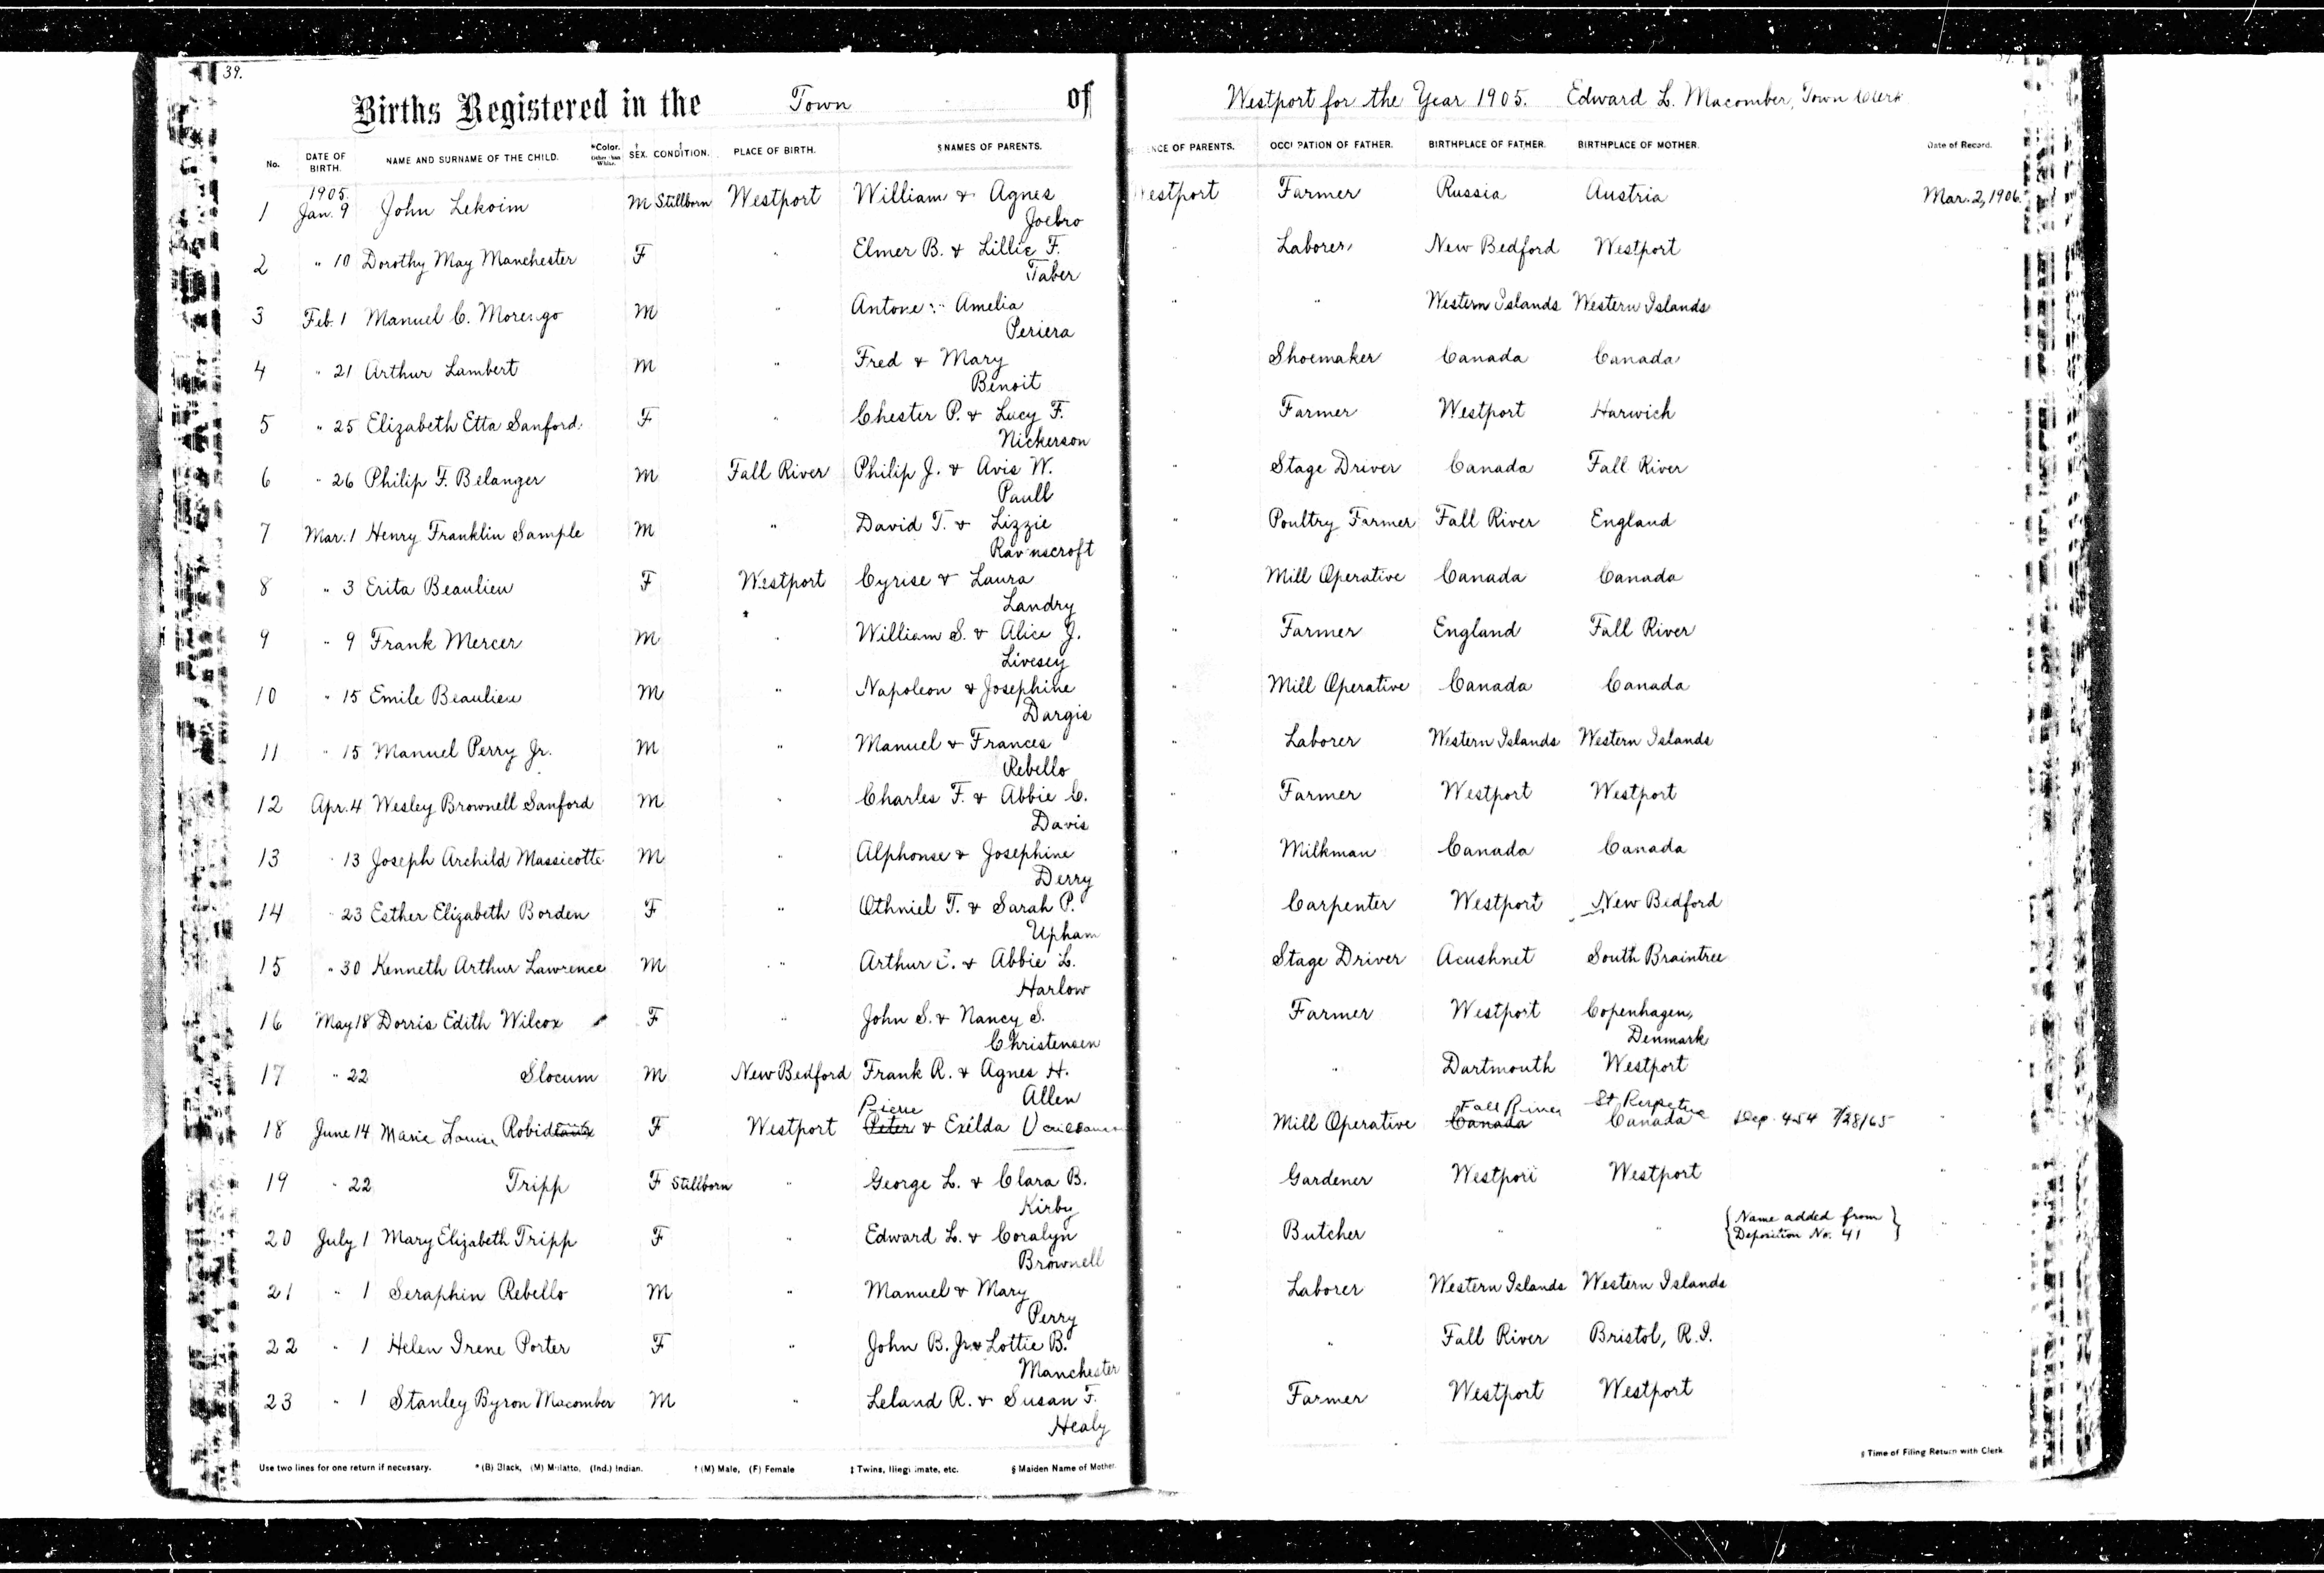 39.
Births Registered in the Town of Westport for the Year 1905. Edward L. Macomber, Town Clerk
No. DATE OF BIRTH. NAME AND SURNAME OF THE CHILD. *Color. Other than White. † SEX. ‡ CONDITION. PLACE OF BIRTH. § NAMES OF PARENTS. OF PARENTS. OCCUPATION OF FATHER. BIRTHPLACE OF FATHER. BIRTHPLACE OF MOTHER. Date of Record.
1905.
1 Jan. 9 John Lekoim M Stillborn Westport William & Agnes Westport Farmer Russia Austria Mar. 2, 1906.
Joebro
2 " 10 Dorothy May Manchester F " Elmer B. & Lillie F. " Laborer New Bedford Westport
Taber
3 Feb. 1 Manuel C. M " Antone " Amelia " " Western Islands Western Islands
Periera
4 " 21 Arthur Lambert M " Fred & Mary Shoemaker Canada Canada
Benoit
5 " 25 Elizabeth Etta Sanford F " Chester P. & Lucy F. Farmer Westport Harwich
Nickerson
6 " 26 Philip F. Belanger M Fall River Philip J. & Avis W. " Stage Driver Canada Fall River
Paull
7 Mar. 1 Henry Franklin Sample M " David T. & Lizzie " Poultry Farmer Fall River England
Ravenscroft
8 " 3 Erita Beaulieu F Westport Cyrise & Laura " Mill Operative Canada Canada
Landry
9 " 9 Frank Mercer M " William S. & Alice J. " Farmer England Fall River
Livesey
10 " 15 Emile Beaulieu M " Napoleon & Josephine " Mill Operative Canada Canada
Dargis
11 " 15 Manuel Perry Jr. M " Manuel & Frances " Laborer Western Islands Western Islands
Rebello
12 Apr. 4 Wesley Brownell Sanford M " Charles F. & Abbie C. " Farmer Westport Westport
Davis
13 " 13 Joseph Archild Massicotte M " Alphonse & Josephine " Milkman Canada Canada
Derry
14 " 23 Esther Elizabeth Borden F " Othniel T. & Sarah P. Carpenter Westport New Bedford
Upham
15 " 30 Kenneth Arthur Lawrence M " Arthur & Abbie L. " Stage Driver Acushnet South Braintree
Harlow
16 May 18 Dorris Edith Wilcox F " John S. & Nancy S. Farmer Westport Copenhagen,
Christensen Denmark
17 " 22 Slocum M New Bedford Frank R. & Agnes H. " " Dartmouth Westport
Allen
Pierre Fall River St. Perpetue
18 June 14 Marie Louise Robid F Westport Peter & Exilda Mill Operative Canada Canada Dep. 454 7/28/65
19 " 22 Tripp F Stillborn " George L. & Clara B. Gardener Westport Westport
Kirby
20 July 1 Mary Elizabeth Tripp F " Edward L. & Coralyn Butcher " " {Name added from
Brownell Deposition No. 41}
21 " 1 Seraphin Rebello M " Manuel & Mary " Laborer Western Islands Western Islands
Perry
22 " 1 Helen Irene Porter F " John B. Jr. & Lottie B. " Fall River Bristol, R.I.
Manchester
23 " 1 Stanley Byron Macomber M " Leland R. & Susan F. " Farmer Westport Westport
Healy
Use two lines for one return if necessary. *(B) Black, (M) Mulatto, (Ind.) Indian. †(M) Male, (F) Female ‡ Twins, Illegitimate, etc. § Maiden Name of Mother. § Time of Filing Return with Clerk.